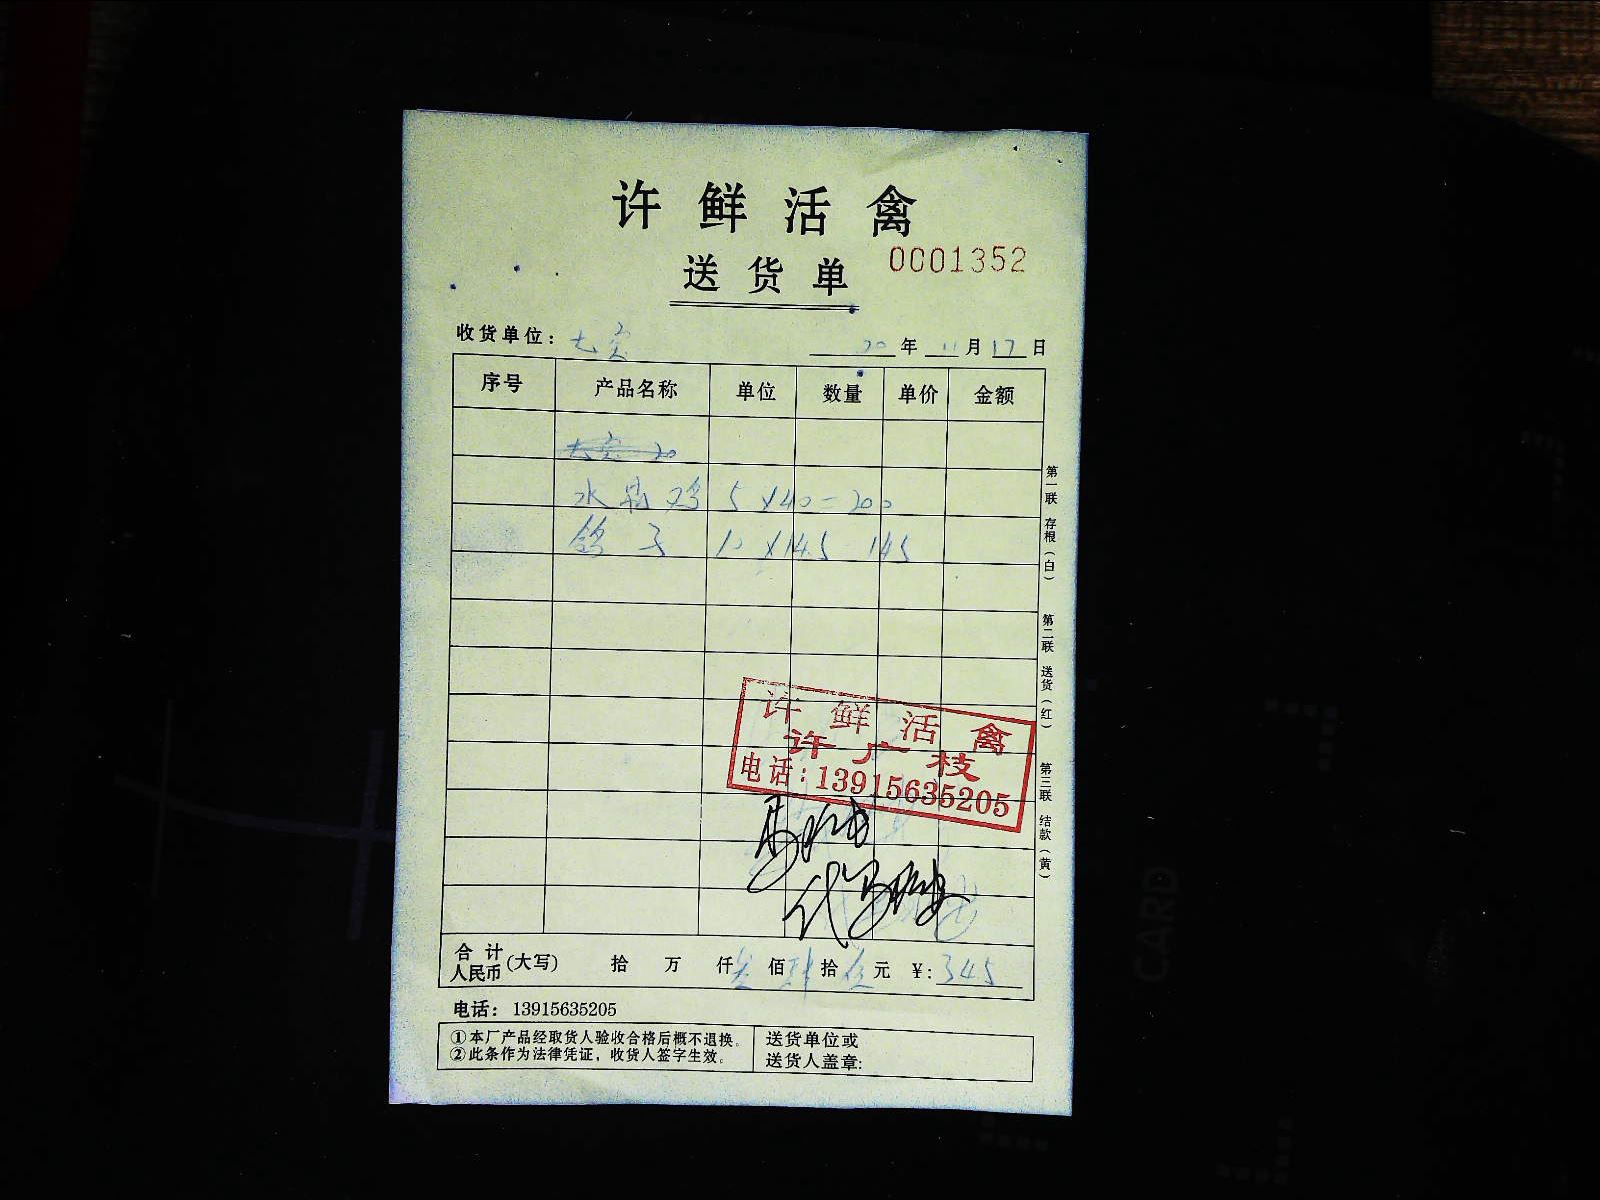 许鲜活禽
送货单
0001352
收货单位: 20年11月17日
序号 产品名称 单位 数量 单价 金额
水晶鸡 5×40=200
鸽子 10×14.5 145
第一联 存根（白）
第二联 送货（红）
第三联 结款（黄）
许鲜活禽
许广枝
电话:13915635205
合计人民币(大写) 拾 万 仟叁佰肆拾伍元 ¥:345
电话: 13915635205
①本厂产品经取货人验收合格后概不退换。
②此条作为法律凭证，收货人签字生效。
送货单位或
送货人盖章:
CARD